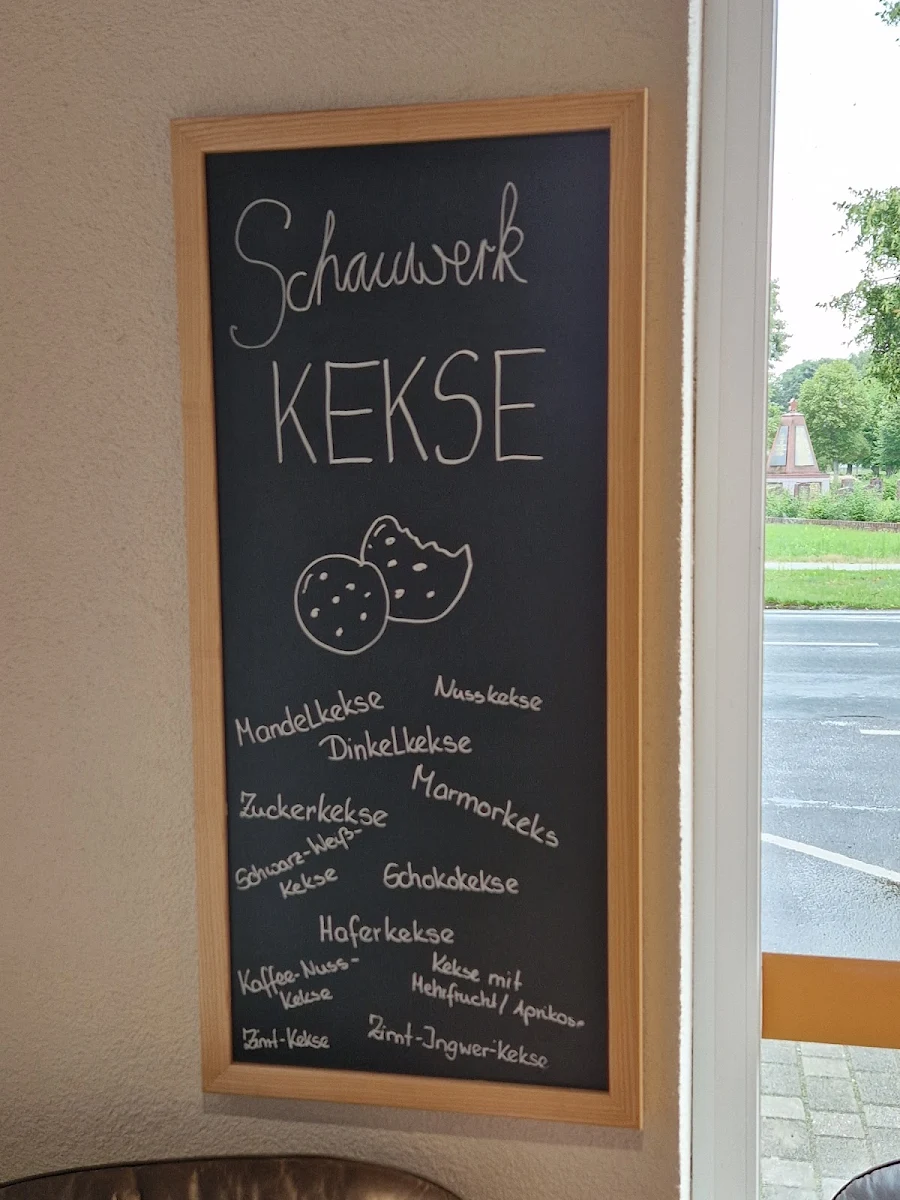 Schauwerk
KEKSE
Mandelkekse
Nusskekse
Dinkelkekse
Marmorkeks
Zuckerkekse
Schwarz-Weiß-
Kekse
Schokokekse
Haferkekse
Kaffee-Nuss-
Kekse
Kekse mit
Mehrfrucht/Aprikose
Zimt-Kekse
Zimt-Ingwer-Kekse